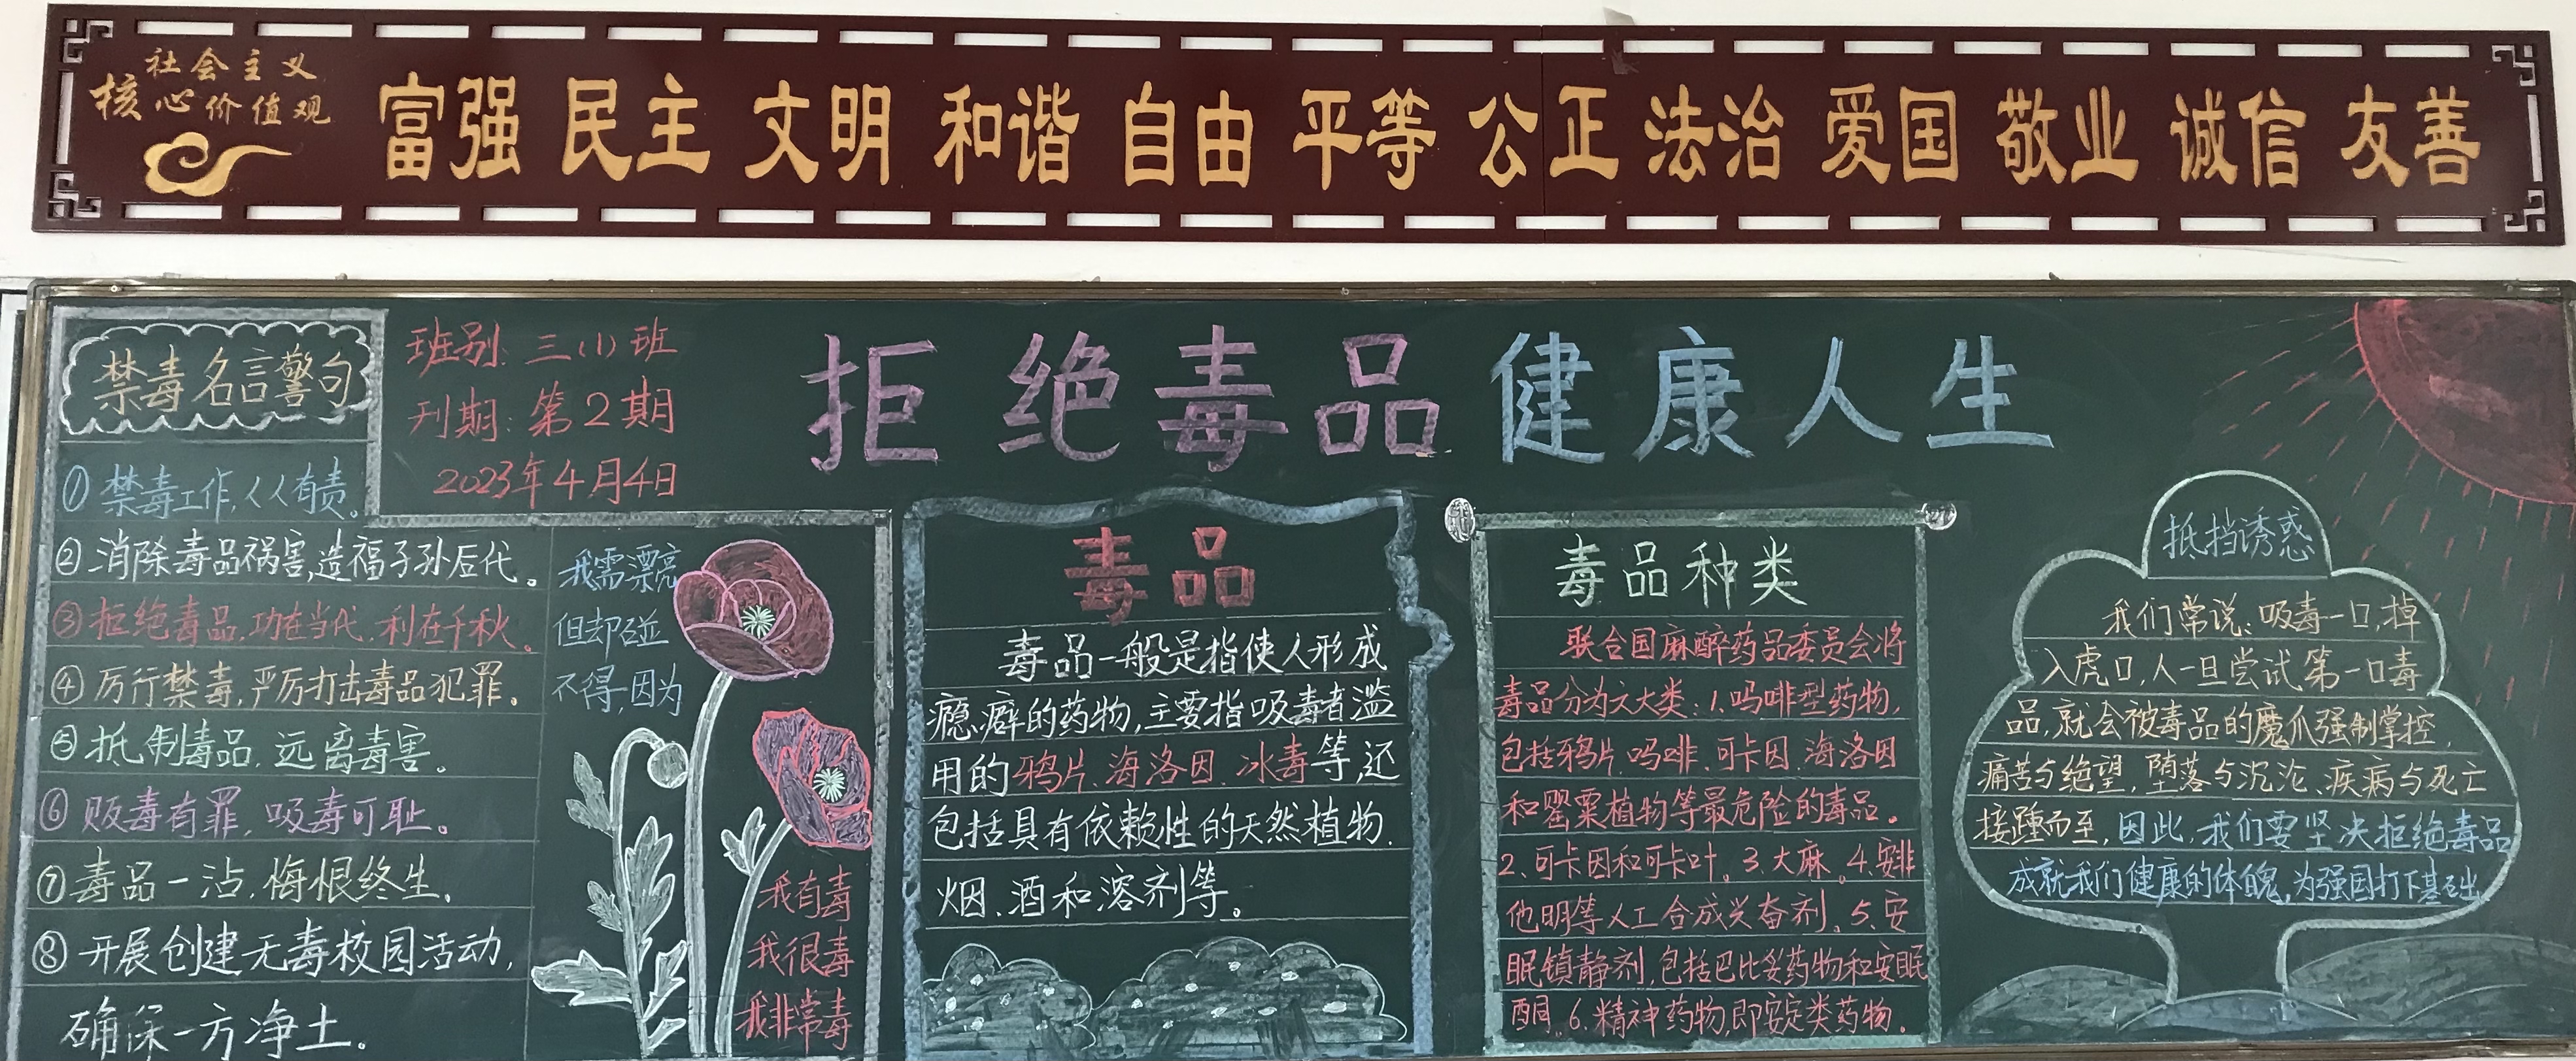 社会主义
核心价值观
富强 民主 文明 和谐 自由 平等 公正 法治 爱国 敬业 诚信 友善
禁毒名言警句
①禁毒工作,人人有责。
②消除毒品祸害,造福子孙后代。
③拒绝毒品,功在当代,利在千秋。
④厉行禁毒,严厉打击毒品犯罪。
⑤抵制毒品,远离毒害。
⑥贩毒有罪,吸毒可耻。
⑦毒品一沾,悔恨终生。
⑧开展创建无毒校园活动,
确保一方净土。
班别:三(1)班
刊期:第2期
2023年4月4日
拒绝毒品 健康人生
我需漂亮
但却碰
不得,因为
我有毒
我很毒
我非常毒
毒品
毒品一般是指使人形成
瘾癖的药物,主要指吸毒者滥
用的鸦片、海洛因、冰毒等,还
包括具有依赖性的天然植物、
烟、酒和溶剂等。
毒品种类
联合国麻醉药品委员会将
毒品分为六大类:1.吗啡型药物,
包括鸦片、吗啡、可卡因、海洛因
和罂粟植物等最危险的毒品。
2.可卡因和可卡叶。3.大麻。4.安非
他明等人工合成兴奋剂。5.安
眠镇静剂,包括巴比妥药物和安眠
酮。6.精神药物,即安定类药物。
抵挡诱惑
我们常说:吸毒一口,掉
入虎口,人一旦尝试第一口毒
品,就会被毒品的魔爪强制掌控,
痛苦与绝望,堕落与沉沦、疾病与死亡
接踵而至,因此,我们要坚决拒绝毒品
成就我们健康的体魄,为强国打下基础